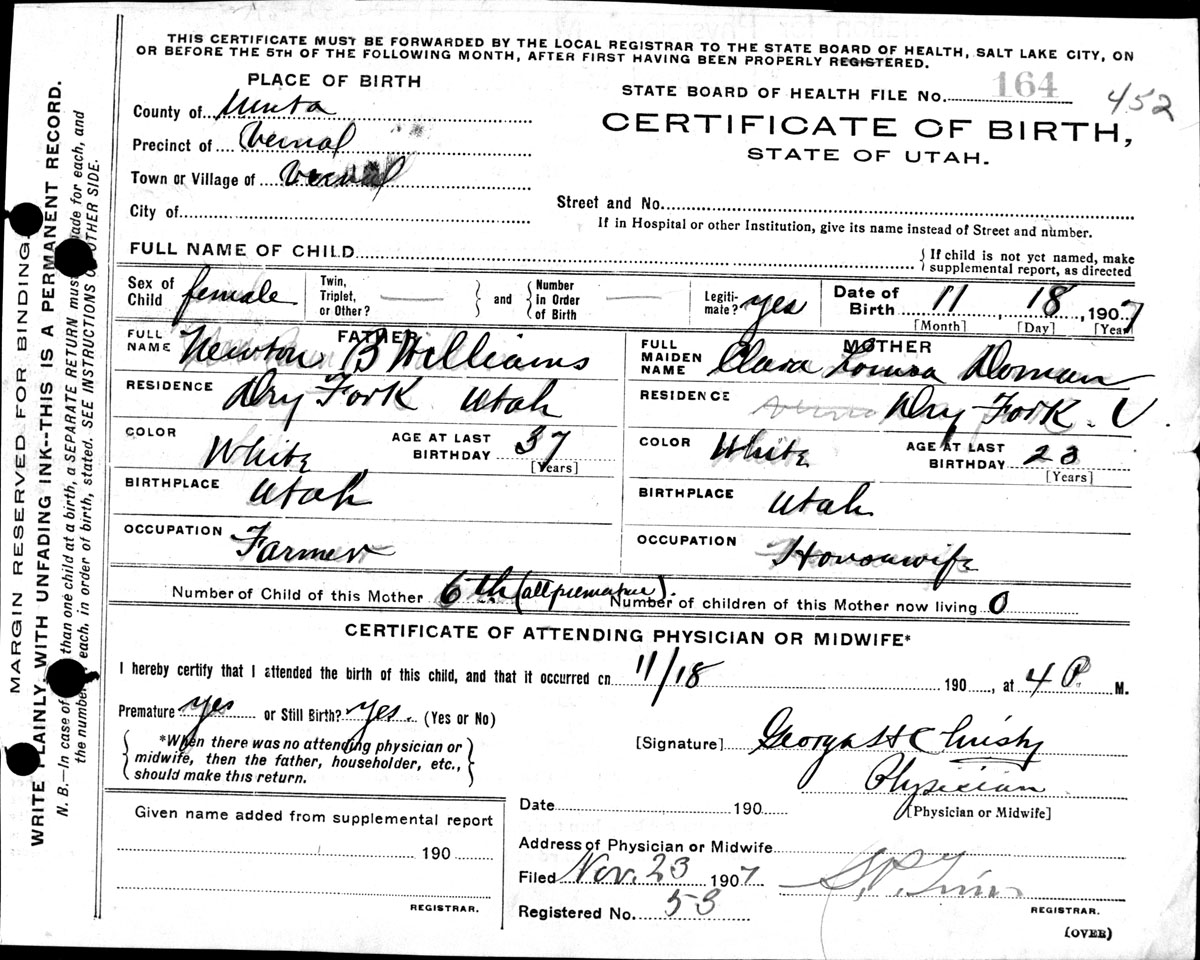 THIS CERTIFICATE MUST BE FORWARDED BY THE LOCAL REGISTRAR TO THE STATE BOARD OF HEALTH, SALT LAKE CITY, ON
OR BEFORE THE 5TH OF THE FOLLOWING MONTH, AFTER FIRST HAVING BEEN PROPERLY REGISTERED.
PLACE OF BIRTH
STATE BOARD OF HEALTH FILE No. 164 452
County of Uinta
CERTIFICATE OF BIRTH,
STATE OF UTAH.
Precinct of Vernal
Town or Village of Vernal
City of
Street and No.
If in Hospital or other Institution, give its name instead of Street and number.
FULL NAME OF CHILD
{ If child is not yet named, make
supplemental report, as directed
Sex of Child female
Twin, Triplet, or Other?
and
Number in Order of Birth
Legiti- mate? yes
Date of Birth 11 18, 1907
[Month] [Day] [Year]
FATHER
FULL NAME Newton B Williams
RESIDENCE Dry Fork Utah
COLOR White
AGE AT LAST BIRTHDAY 37
[Years]
BIRTHPLACE Utah
OCCUPATION Farmer
MOTHER
FULL MAIDEN NAME Clara Louisa Doman
RESIDENCE Dry Fork. U
COLOR White
AGE AT LAST BIRTHDAY 23
[Years]
BIRTHPLACE Utah
OCCUPATION Honsunwife
Number of Child of this Mother 6th (all premature).
Number of children of this Mother now living 0
CERTIFICATE OF ATTENDING PHYSICIAN OR MIDWIFE*
I hereby certify that I attended the birth of this child, and that it occurred on 11/18 190 , at 4 P. M.
Premature yes or Still Birth? yes. (Yes or No)
*When there was no attending physician or
midwife, then the father, householder, etc.,
should make this return.
[Signature] George H Christy
Physician
[Physician or Midwife]
Given name added from supplemental report
190
REGISTRAR.
Date 190
Address of Physician or Midwife
Filed Nov. 23 1907
Registered No. 53
REGISTRAR.
(OVER)
MARGIN RESERVED FOR BINDING
WRITE PLAINLY, WITH UNFADING INK--THIS IS A PERMANENT RECORD.
N. B.—In case of than one child at a birth, a SEPARATE RETURN must made for each, and
the number each, in order of birth, stated. SEE INSTRUCTIONS OTHER SIDE.